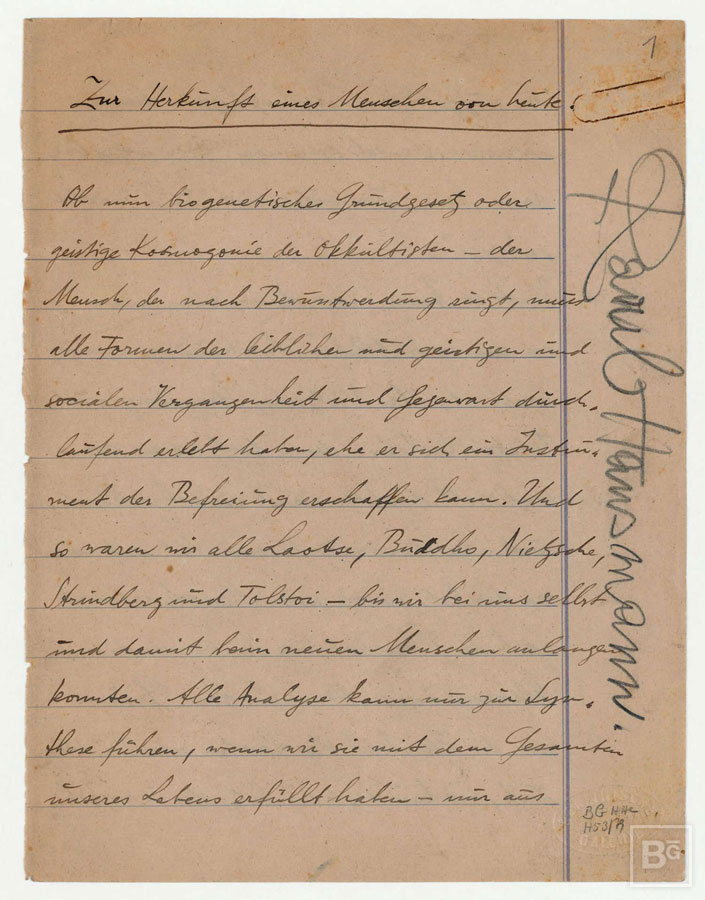 1
Zur Herkunft eines Menschen von heute.
Ob nun biogenetisches Grundgesetz oder
geistige Kosmogonie der Okkultisten – der
Mensch, der nach Bewusstwerdung ringt, muss
alle Formen der leiblichen und geistigen und
socialen Vergangenheit und Gegenwart durch-
laufend erlebt haben, ehe er sich ein Instru-
ment der Befreiung erschaffen kann. Und
so waren wir alle Laotse, Buddho, Nietzsche,
Strindberg und Tolstoi – bis wir bei uns selbst
und damit beim neuen Menschen anlangen
konnten. Alle Analyse kann nur zur Syn-
these führen, wenn wir sie mit dem Gesamten
unseres Lebens erfüllt haben – nur aus
Raoul Hausmann.
BG
H53/79
BG